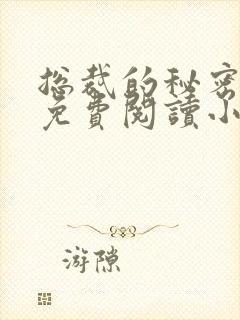 总裁的秘密
免費閱讀小
游隙